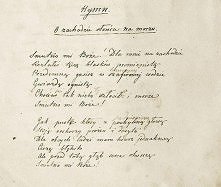 Hymn.
O zachodzie słońca na morzu.
Smutno mi Boże! Dla mnie na zachodzie
Rozlałeś tęczę blasków promienistą
Przede mną gasisz w lazurowej wodzie
Gwiazdę ognistą
tak niebo morze
Smutno mi Boże!
Jak puste kłosy z podniesioną głową
Stoję rozkoszy próżen i dosytu
Dla obcych ludzi mam twarz jednakową
Ciszę błękitu
Ale przed tobą głąb serca otworzę
Smutno mi Boże!